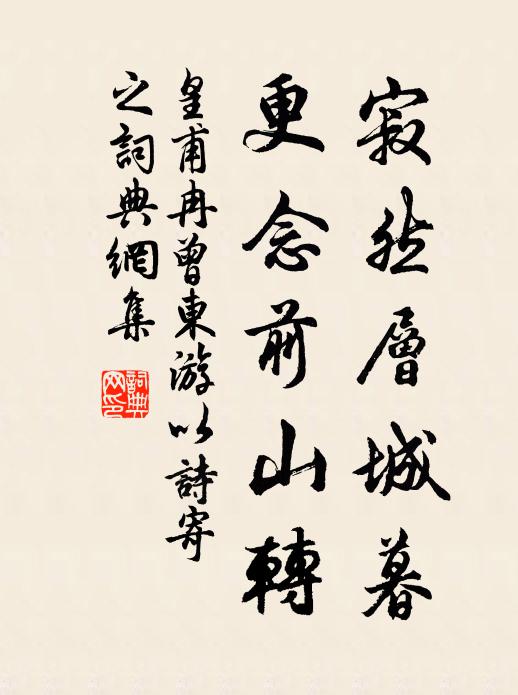 寂然層城暮
更念前山轉
皇甫冉曾東游以詩寄
之詞典網集
詞典
网印